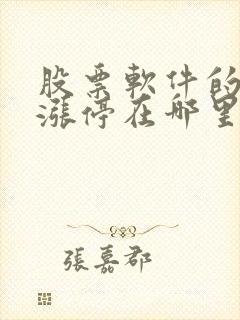 股票軟件的
漲停在哪里
張嘉郡